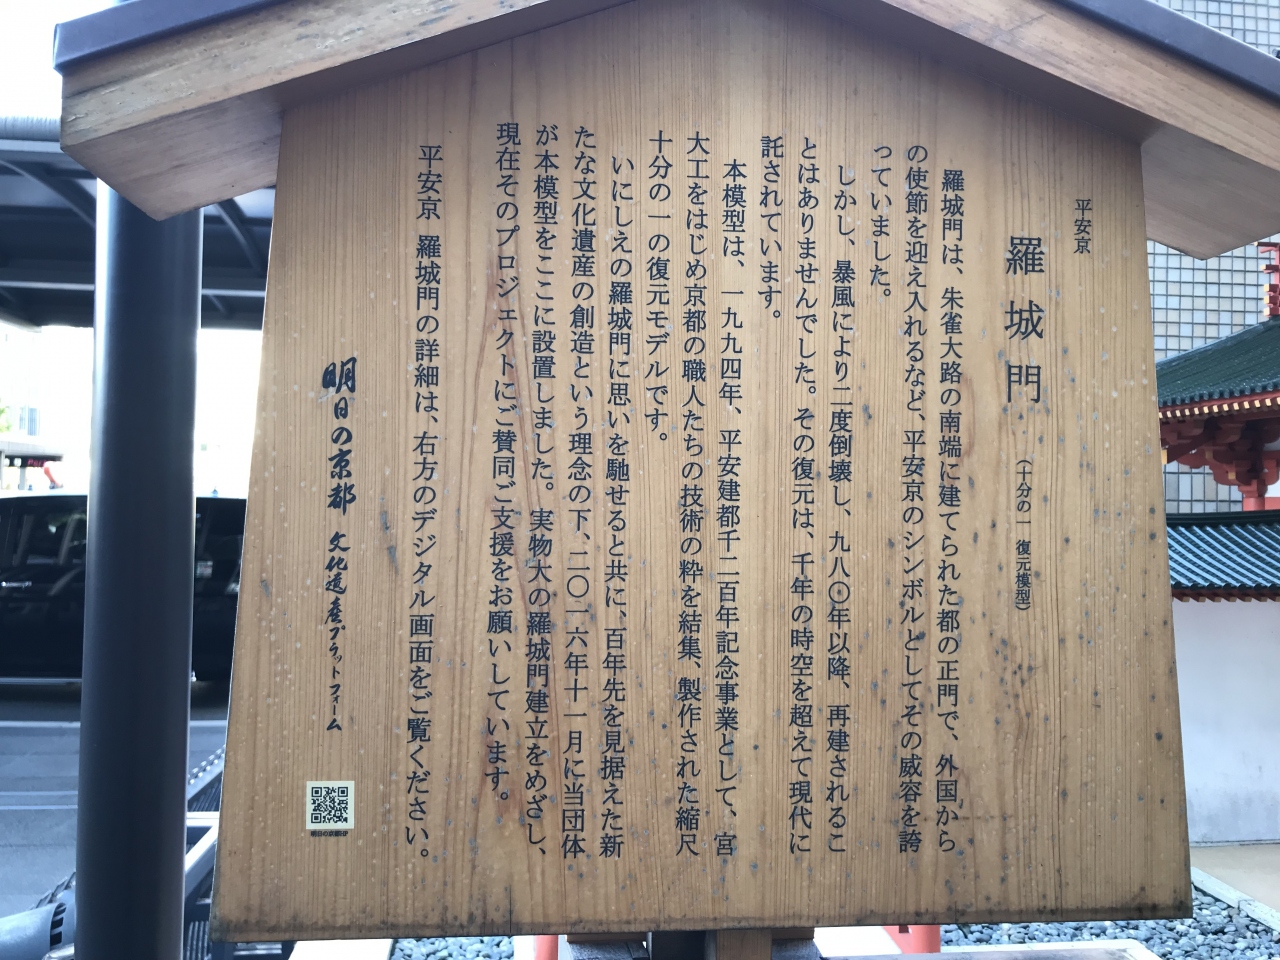 平安京
羅城門 (十分の一 復元模型)
羅城門は、朱雀大路の南端に建てられた都の正門で、外国から
の使節を迎え入れるなど、平安京のシンボルとしてその威容を誇
っていました。
しかし、暴風により二度倒壊し、九八〇年以降、再建されるこ
とはありませんでした。その復元は、千年の時空を超えて現代に
託されています。
本模型は、一九九四年、平安建都千二百年記念事業として、宮
大工をはじめ京都の職人たちの技術の粋を結集、製作された縮尺
十分の一の復元モデルです。
いにしえの羅城門に思いを馳せると共に、百年先を見据えた新
たな文化遺産の創造という理念の下、二〇一六年十一月に当団体
が本模型をここに設置しました。実物大の羅城門建立をめざし、
現在そのプロジェクトにご賛同ご支援をお願いしています。
平安京 羅城門の詳細は、右方のデジタル画面をご覧ください。
明日の京都 文化遺産プラットフォーム
明日の京都HP